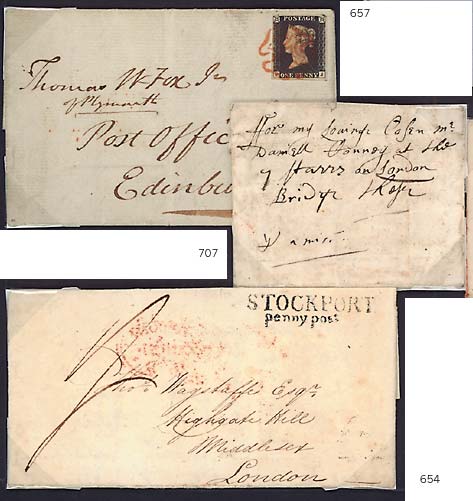 657
POSTAGE
ONE PENNY
Thomas W Fox Jr
of Plymouth
Post Offic
Edinbu
For my Loving Cosen mr
Daniell at the
7 Starrs on London
Bridge
707
STOCKPORT
penny post
Thos Wagstaffe Esqr
Highgate Hill
Middlesex
London
654